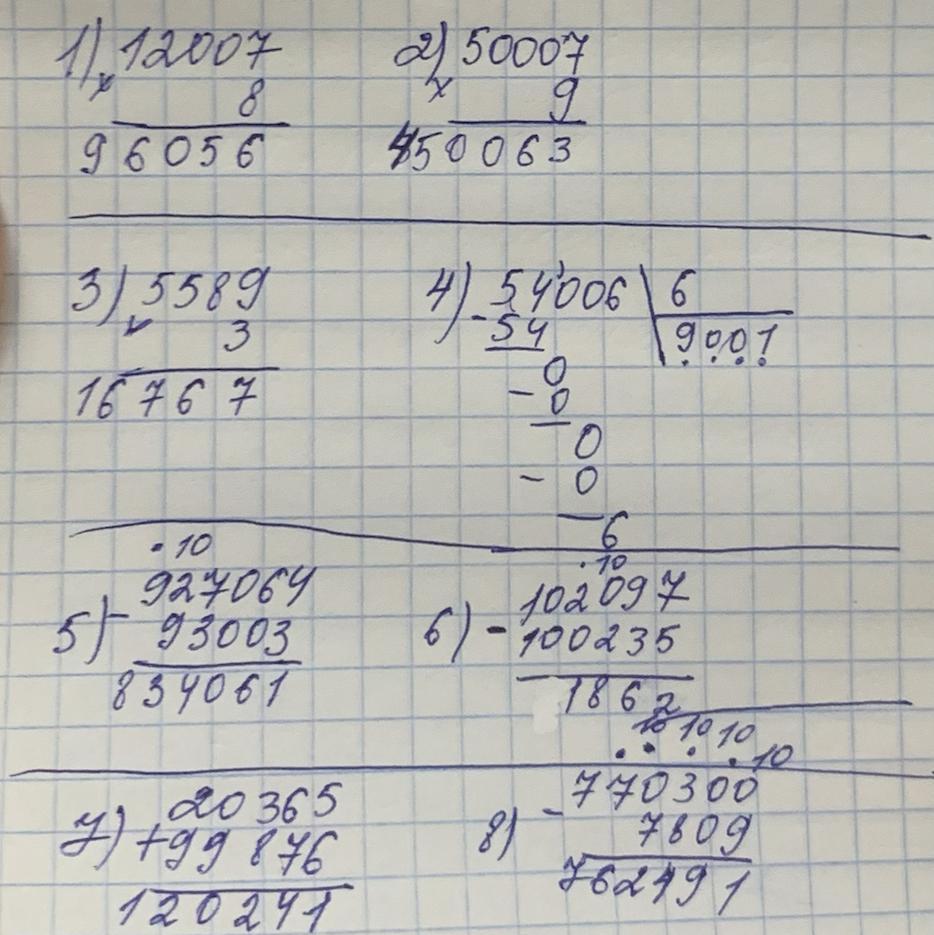 1) 12007
x 8
96056
2) 50007
x 9
450063
3) 5589
x 3
16767
4) 54006 6
- 54 9001
0
- 0
0
- 0
6
. 10
5) - 927064
93003
834061
. 10
6) - 102097
100235
1862
7) + 20365
99876
120241
. . 10 . 10 . 10 10
8) - 770300
7809
762491